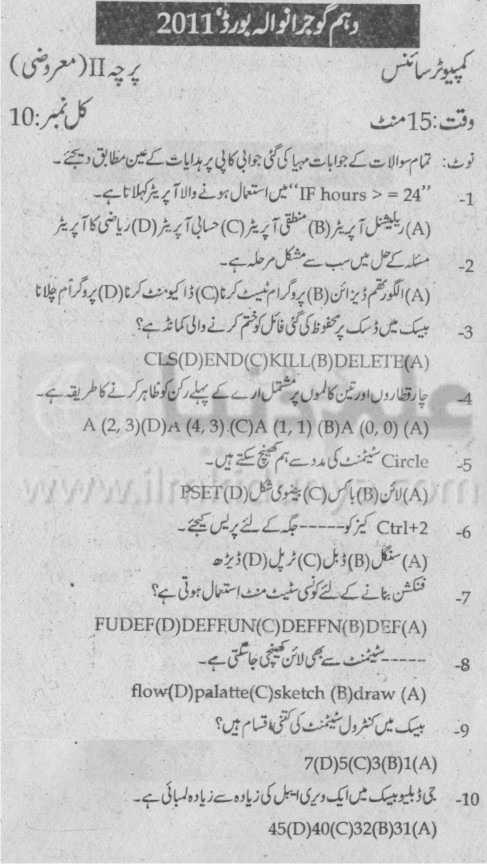 دہم گوجرانوالہ بورڈ' 2011
کمپیوٹر سائنس پرچہ II (معروضی)
وقت: 15 منٹ کل نمبر: 10
نوٹ: تمام سوالات کے جوابات مہیا کی گئی جوابی کاپی پر ہدایات کے عین مطابق دیجئے۔
1- "IF hours > = 24" میں استعمال ہونے والا آپریٹر کہلاتا ہے۔
(A) ریلیشنل آپریٹر (B) منطقی آپریٹر (C) حسابی آپریٹر (D) ریاضی کا آپریٹر
2- مسئلہ کے حل میں سب سے مشکل مرحلہ ہے۔
(A) الگورتھم ڈیزائن (B) پروگرام ٹیسٹ کرنا (C) ڈاکیومنٹ کرنا (D) پروگرام چلانا
3- بیسک میں ڈسک پر محفوظ کی گئی فائل کو ختم کرنے والی کمانڈ ہے؟
CLS(D)END(C)KILL(B)DELETE(A)
4- چار قطاروں اور تین کالموں پر مشتمل ارے کے پہلے رکن کو ظاہر کرنے کا طریقہ ہے۔
A (2, 3)(D)A (4, 3).(C)A (1, 1) (B)A (0, 0) (A)
5- Circle سٹیٹمنٹ کی مدد سے ہم کھینچ سکتے ہیں۔
(A) لائن (B) باکس (C) بیضوی شکل (D) PSET
6- Ctrl+2 کیز کو ----- جگہ کے لئے پریس کیجئے۔
(A) سنگل (B) ڈبل (C) ٹرپل (D) ڈیڑھ
7- فنکشن بنانے کے لئے کونسی سٹیٹ منٹ استعمال ہوتی ہے؟
FUDEF(D)DEFFUN(C)DEFFN(B)DEF(A)
8- ----- سٹیٹمنٹ سے بھی لائن کھینچی جا سکتی ہے۔
flow(D)palatte(C)sketch (B)draw (A)
9- بیسک میں کنٹرول سٹیٹمنٹ کی کتنی اقسام ہیں؟
7(D)5(C)3(B)1(A)
10- جی ڈبلیو بیسک میں ایک ویری ایبل کی زیادہ سے زیادہ لمبائی ہے۔
45(D)40(C)32(B)31(A)
علم کی دنیا